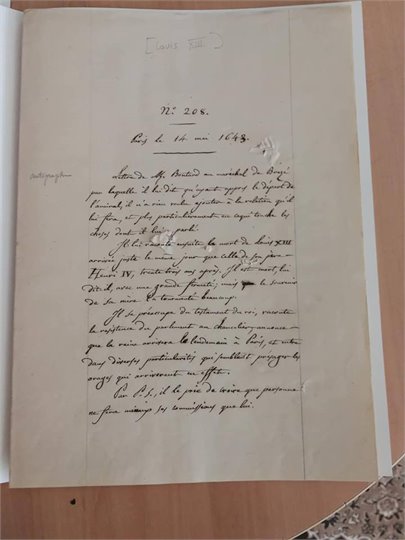 [Louis XIII]
N° 208.
Paris le 14 mai 1643.
autographe
Lettre de M. au maréchal de Brézé
par laquelle il lui dit qu'ayant appris le départ de
l'amiral, il n'a rien voulu ajouter à la relation qu'il
lui fera, et plus particulièrement en ce qui touche les
choses dont il lui a parlé.
Il lui raconte ensuite la mort de Louis XIII
arrivée juste le même jour que celle de son père
Henri IV, trente trois ans après. Il est mort, lui
dit il, avec une grande fermeté; mais le souvenir
de sa mère l'a tourmenté beaucoup.
Il se du testament du roi, raconte
la résistance du parlement au chancelier, annonce
que la reine arrivera le lendemain à Paris, et entre
dans diverses particularités qui semblent présager les
orages qui arrivèrent en effet.
Par P.S., il le prie de croire que personne
ne fera mieux ses commissions que lui.